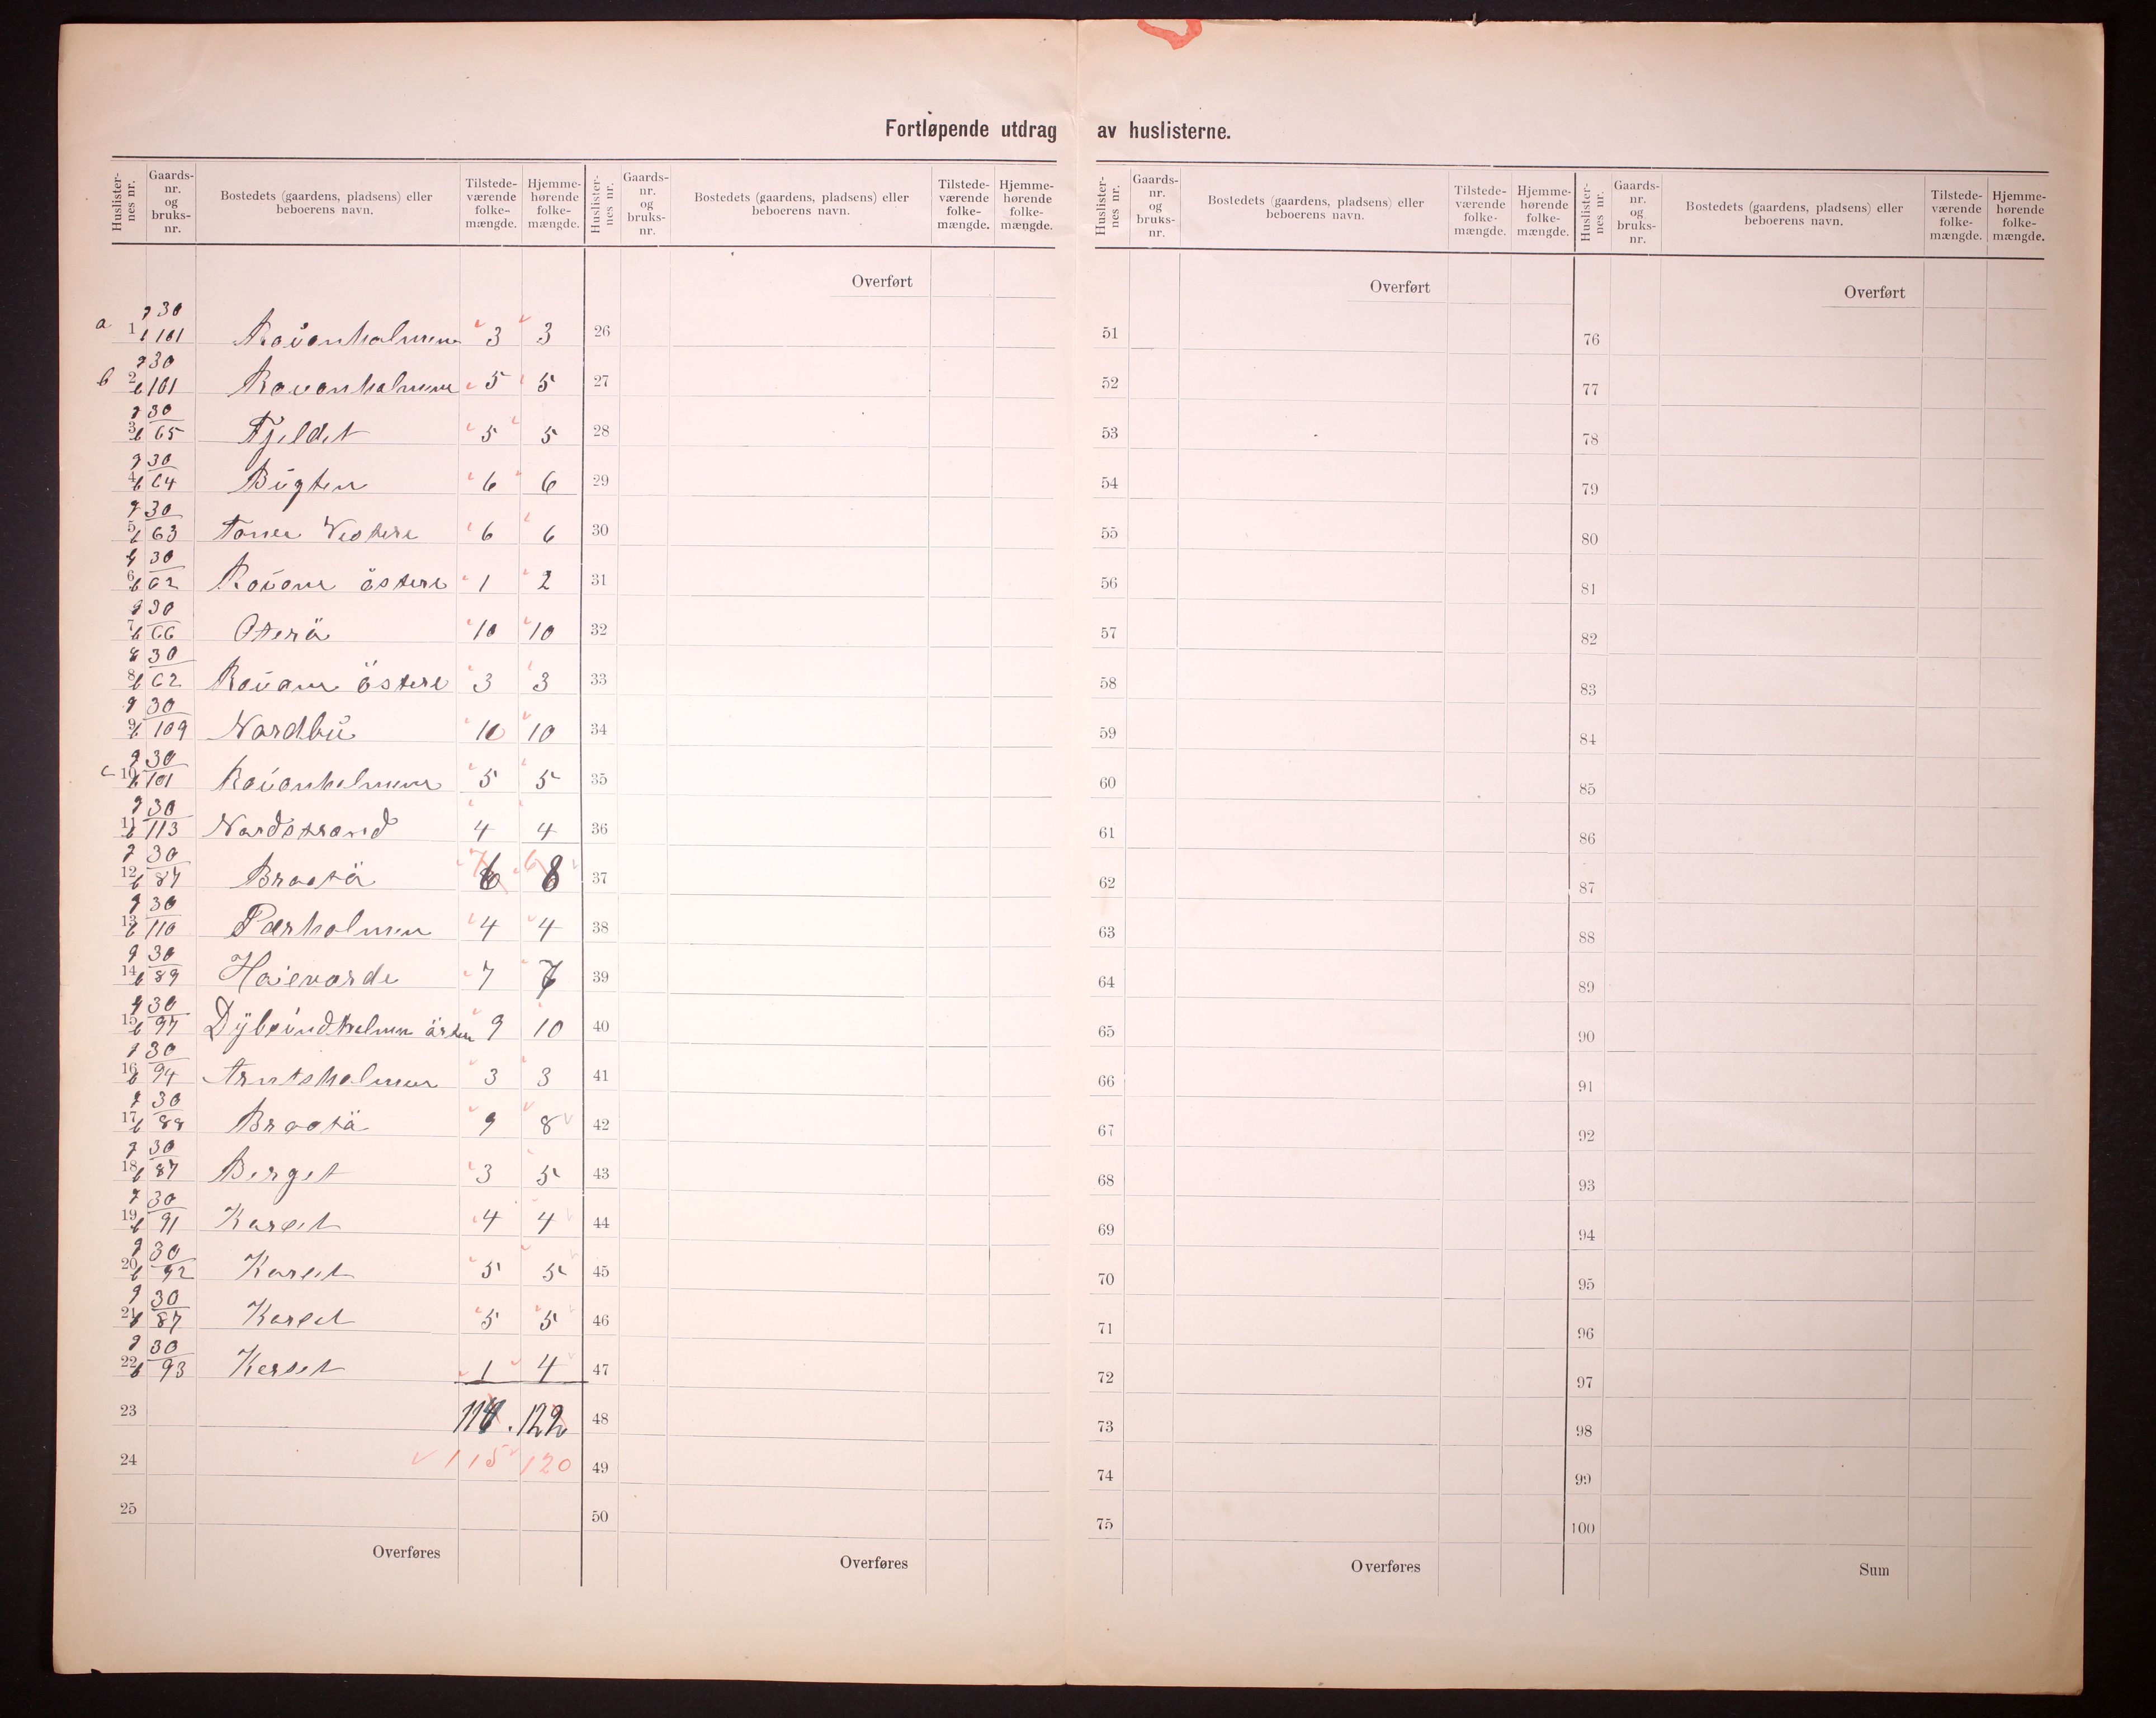 Fortløpende utdrag av huslisterne.
Huslisternes nr. Gaards-nr. og bruks-nr. Bostedets (gaardens, pladsens) eller beboerens navn. Tilstedeværende folkemængde. Hjemmehørende folkemængde.
Huslisternes nr. Gaards-nr. og bruks-nr. Bostedets (gaardens, pladsens) eller beboerens navn. Tilstedeværende folkemængde. Hjemmehørende folkemængde.
Huslisternes nr. Gaards-nr. og bruks-nr. Bostedets (gaardens, pladsens) eller beboerens navn. Tilstedeværende folkemængde. Hjemmehørende folkemængde.
Huslisternes nr. Gaards-nr. og bruks-nr. Bostedets (gaardens, pladsens) eller beboerens navn. Tilstedeværende folkemængde. Hjemmehørende folkemængde.
Overført Overført Overført
a 1 g 30 b 101 Rovonholmene 3 3 26 51 76
b 2 g 30 b 101 Rovonholmene 5 5 27 52 77
3 g 30 b 65 Fjeldet 5 5 28 53 78
4 g 30 b 64 Bugten 6 6 29 54 79
5 g 30 b 63 Vestere 6 6 30 55 80
6 g 30 b 62 östere 1 2 31 56 81
7 g 30 b 66 Oterö 10 10 32 57 82
8 g 30 b 62 östere 3 3 33 58 83
9 g 30 b 109 Nordbu 10 10 34 59 84
c 10 g 30 b 101 Rovonholmene 5 5 35 60 85
11 g 30 b 113 Nordstrand 4 4 36 61 86
12 g 30 b 87 7 6 6 8 37 62 87
13 g 30 b 110 Pærholmen 4 4 38 63 88
14 g 30 b 89 Hoievarde 7 7 39 64 89
15 g 30 b 97 Dybsundholmen 9 10 40 65 90
16 g 30 b 94 Arntsholmen 3 3 41 66 91
17 g 30 b 88 9 8 42 67 92
18 g 30 b 87 Berget 3 5 43 68 93
19 g 30 b 91 Karset 4 4 44 69 94
20 g 30 b 92 Karset 5 5 45 70 95
21 g 30 b 87 Karset 5 5 46 71 96
22 g 30 b 93 Karset 1 4 47 72 97
23 114 122 48 73 98
24 115 120 49 74 99
25 50 75 100
Overføres Overføres Overføres Sum